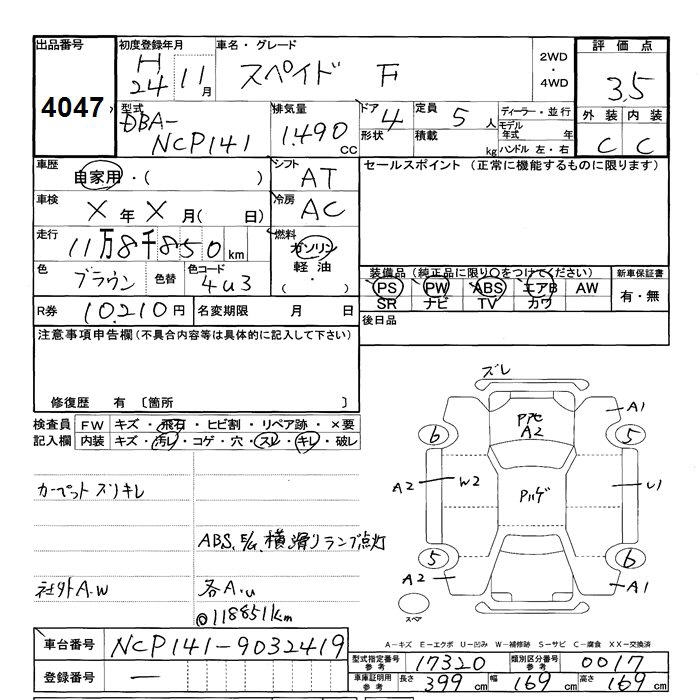 出品番号
4047
初度登録年月
H24 11月
車名・グレード
スペイド F
2WD
・
4WD
評価点
3.5
外装 内装
C C
型式
DBA-
NCP141
排気量
1.490 CC
ドア
4
形状
定員
5 人
積載
kg
ディーラー・並行
モデル年式 年
ハンドル 左・右
車歴
自家用・( )
シフト
AT
セールスポイント (正常に機能するものに限ります)
車検
X 年 X 月( 日)
冷房
AC
走行
11万8千850km
燃料
ガソリン
軽油
・
( )
色
ブラウン
色替
色コード
4U3
装備品 (純正品に限り○をつけてください)
PS PW ABS エアB AW
SR ナビ TV カワ
新車保証書
有・無
R券
10,210円
名変期限 月 日
後日品
注意事項申告欄(不具合内容等は具体的に記入して下さい)
修復歴 有 〔箇所 〕
検査員記入欄
FW キズ・飛石・ヒビ割・リペア跡・×要
内装 キズ・汚レ・コゲ・穴・スレ・キレ・破レ
カーペットズリキレ
ABS, E/G, 横滑りランプ点灯
社外A.W
各A.U
@118851km
ズレ
A2
A1
6
5
A2
W2
U1
5
6
A2
A1
スペア
A-キズ E-エクボ U-凹み W-補修跡 S-サビ C-腐食 XX-交換済
車台番号
NCP141-9032419
登録番号
—
型式指定番号参考
17320
類別区分番号参考
0017
車庫証明用参考
長さ 399cm 幅 169cm 高さ 169cm